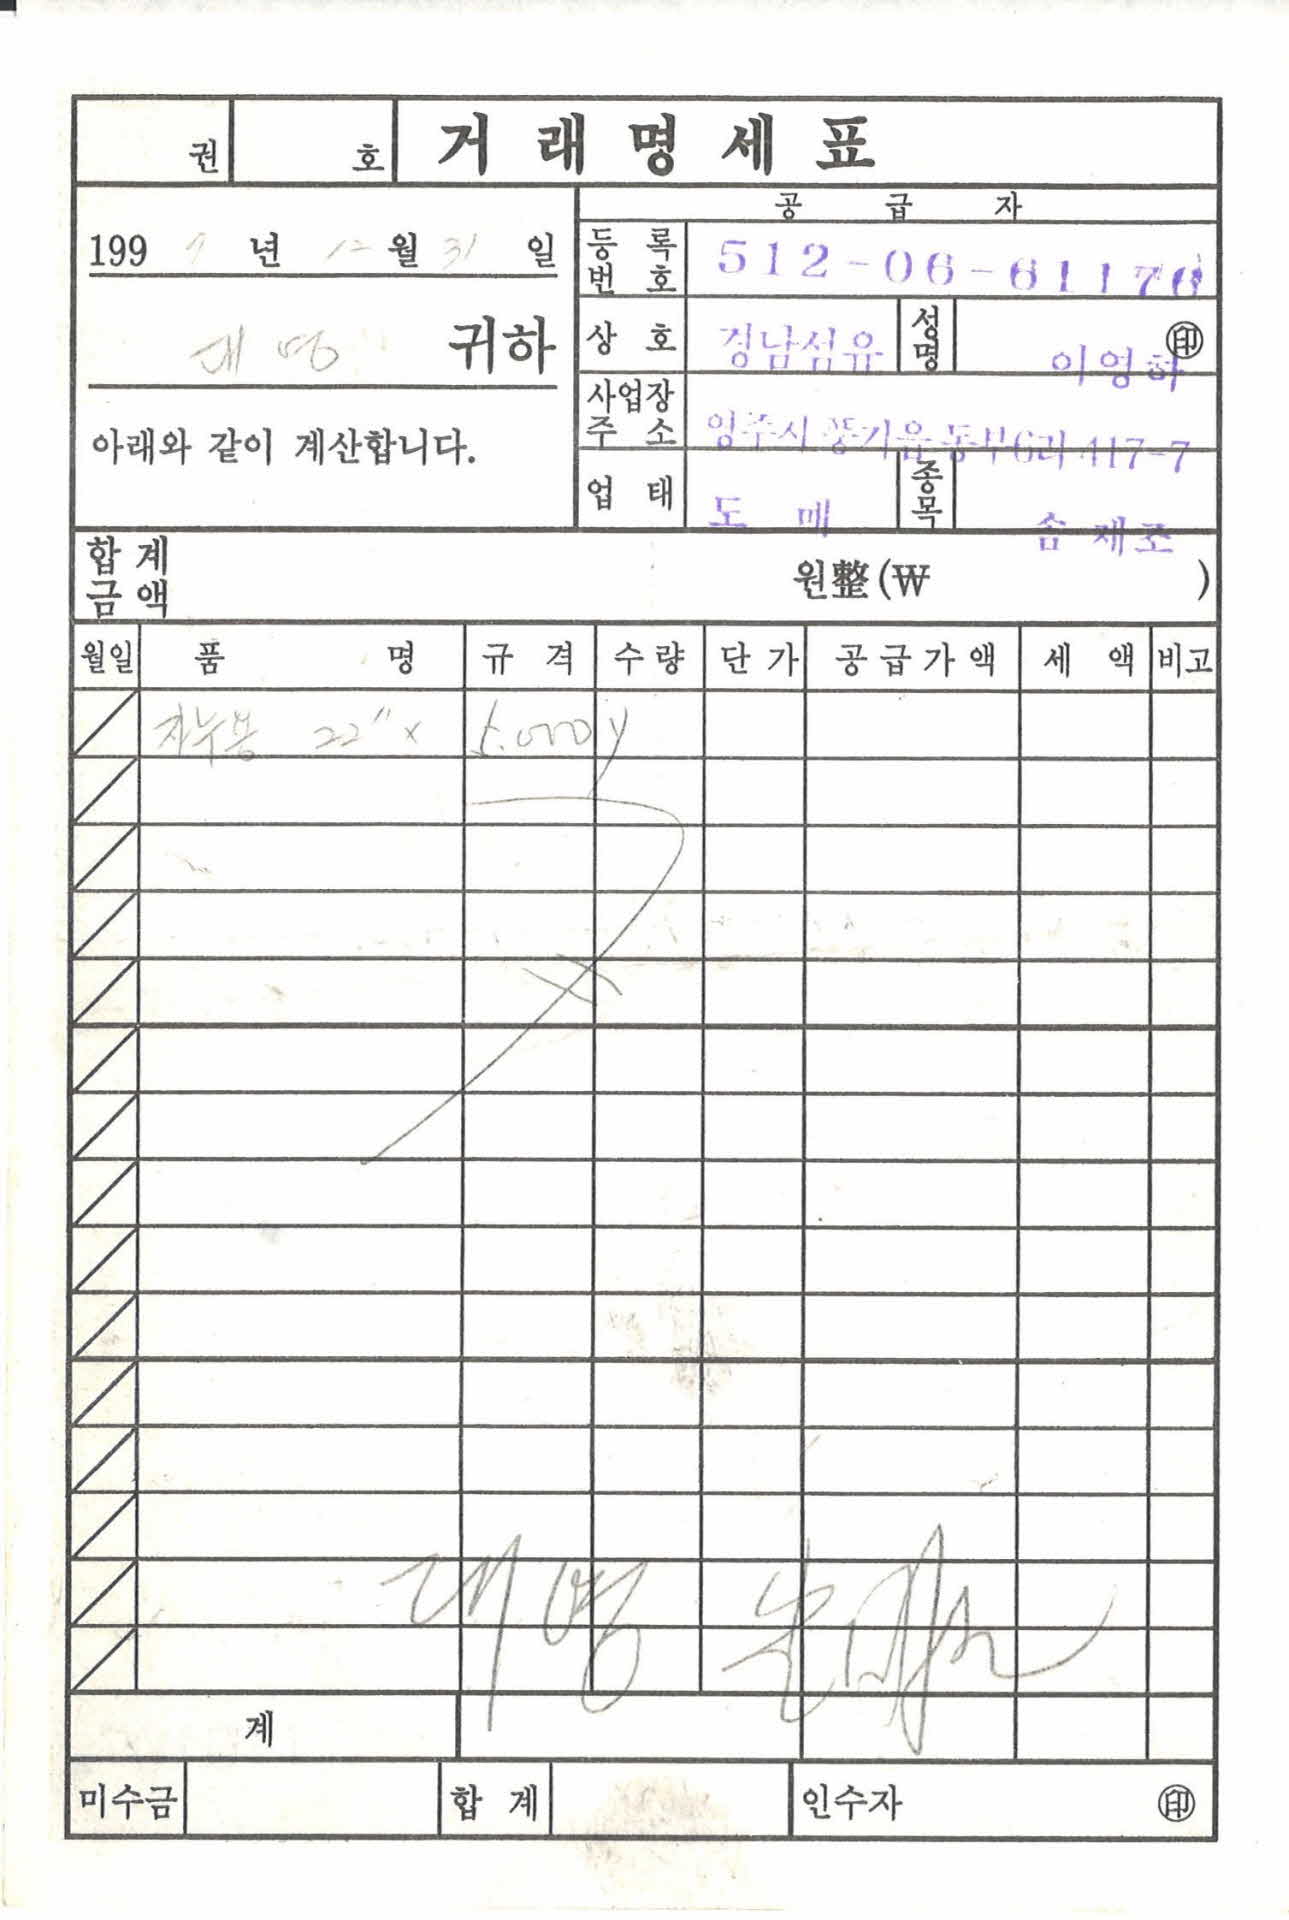 권 호 거래명세표
공급자
199 7 년 12 월 31 일
등록번호 512-06-61176
대명 귀하
상호 경남섬유 성명 이영하 ㊞
사업장주소 영주시 풍기읍 동부6리 417-7
아래와 같이 계산합니다.
업태 도매 종목 솜제조
합계금액 원整(₩ )
월일 품명 규격 수량 단가 공급가액 세액 비고
자누용 22" x 5.000y
대명
계
미수금 합계 인수자 ㊞